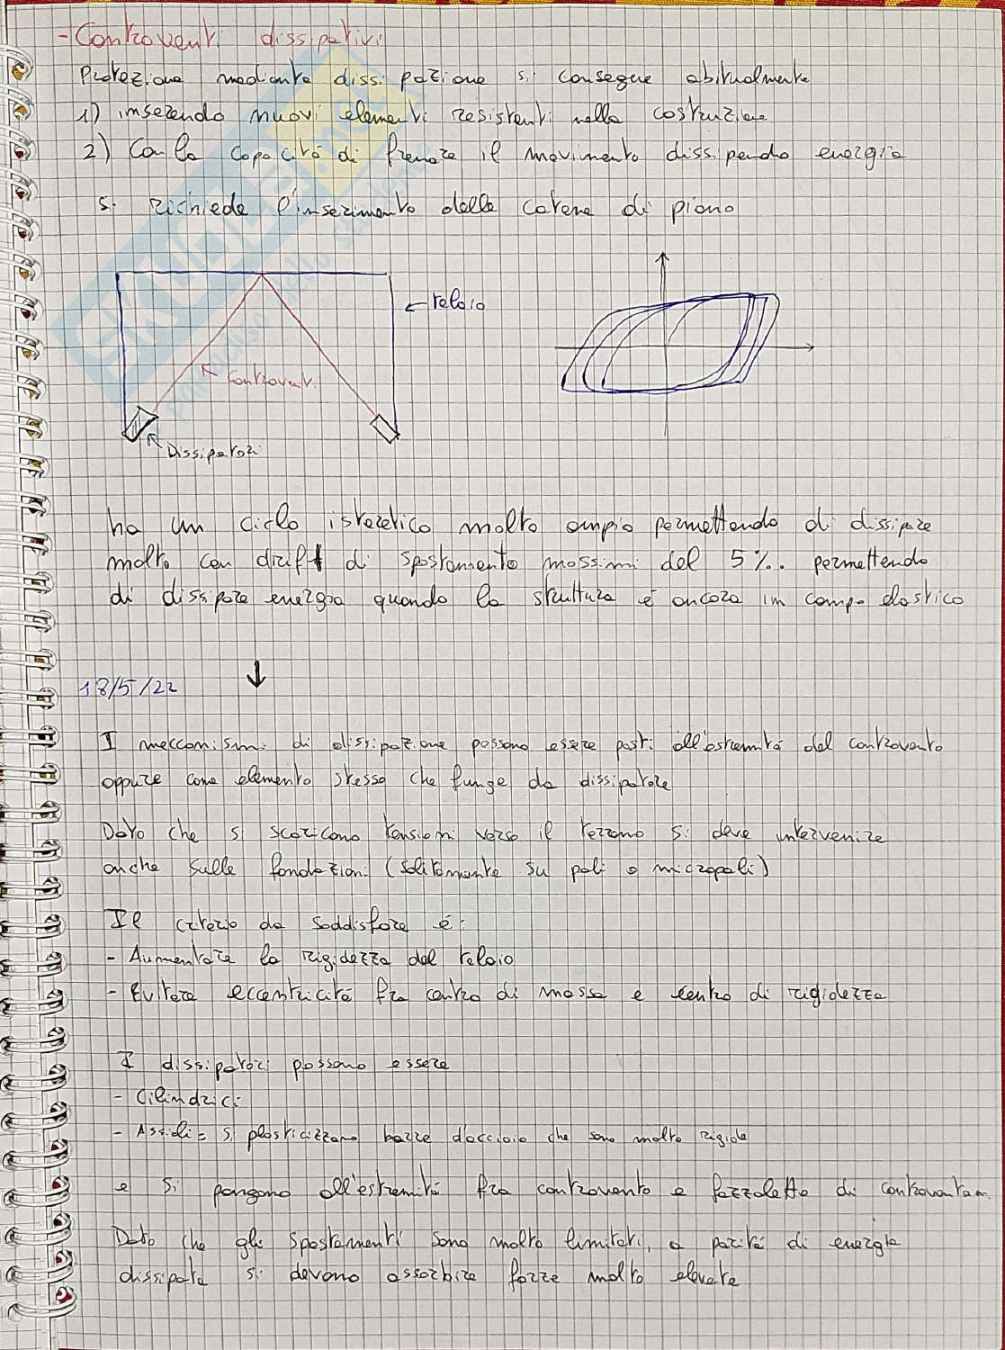 - Controventi dissipativi
Protezione mediante dissipazione si consegue abitualmente
1) inserendo nuovi elementi resistenti nella costruzione
2) Con la capacità di frenare il movimento dissipando energia
si richiede l'inserimento delle catene di piano
← telaio
Controventi
Dissipatori
ha un ciclo isteretico molto ampio permettendo di dissipare
molto con drift di spostamento massimi del 5‰. permettendo
di dissipare energia quando la struttura è ancora in campo elastico
18/5/22
I meccanismi di dissipazione possono essere posti all'estremità del controvento
oppure come elemento stesso che funge da dissipatore
Dato che si scaricano tensioni verso il terreno si deve intervenire
anche sulle fondazioni (solitamente su pali o micropali)
Il criterio da soddisfare é:
- Aumentare la rigidezza del telaio
- Evitare eccentricità fra centro di massa e centro di rigidezza
I dissipatori possono essere
- Cilindrici
- Assiali = si plasticizzano barre d'acciaio che sono molto rigide
e si pongono all'estremità fra controvento e fazzoletto di controventam.
Dato che gli spostamenti sono molto limitati, a parità di energia
dissipata si devono assorbire forze molto elevate